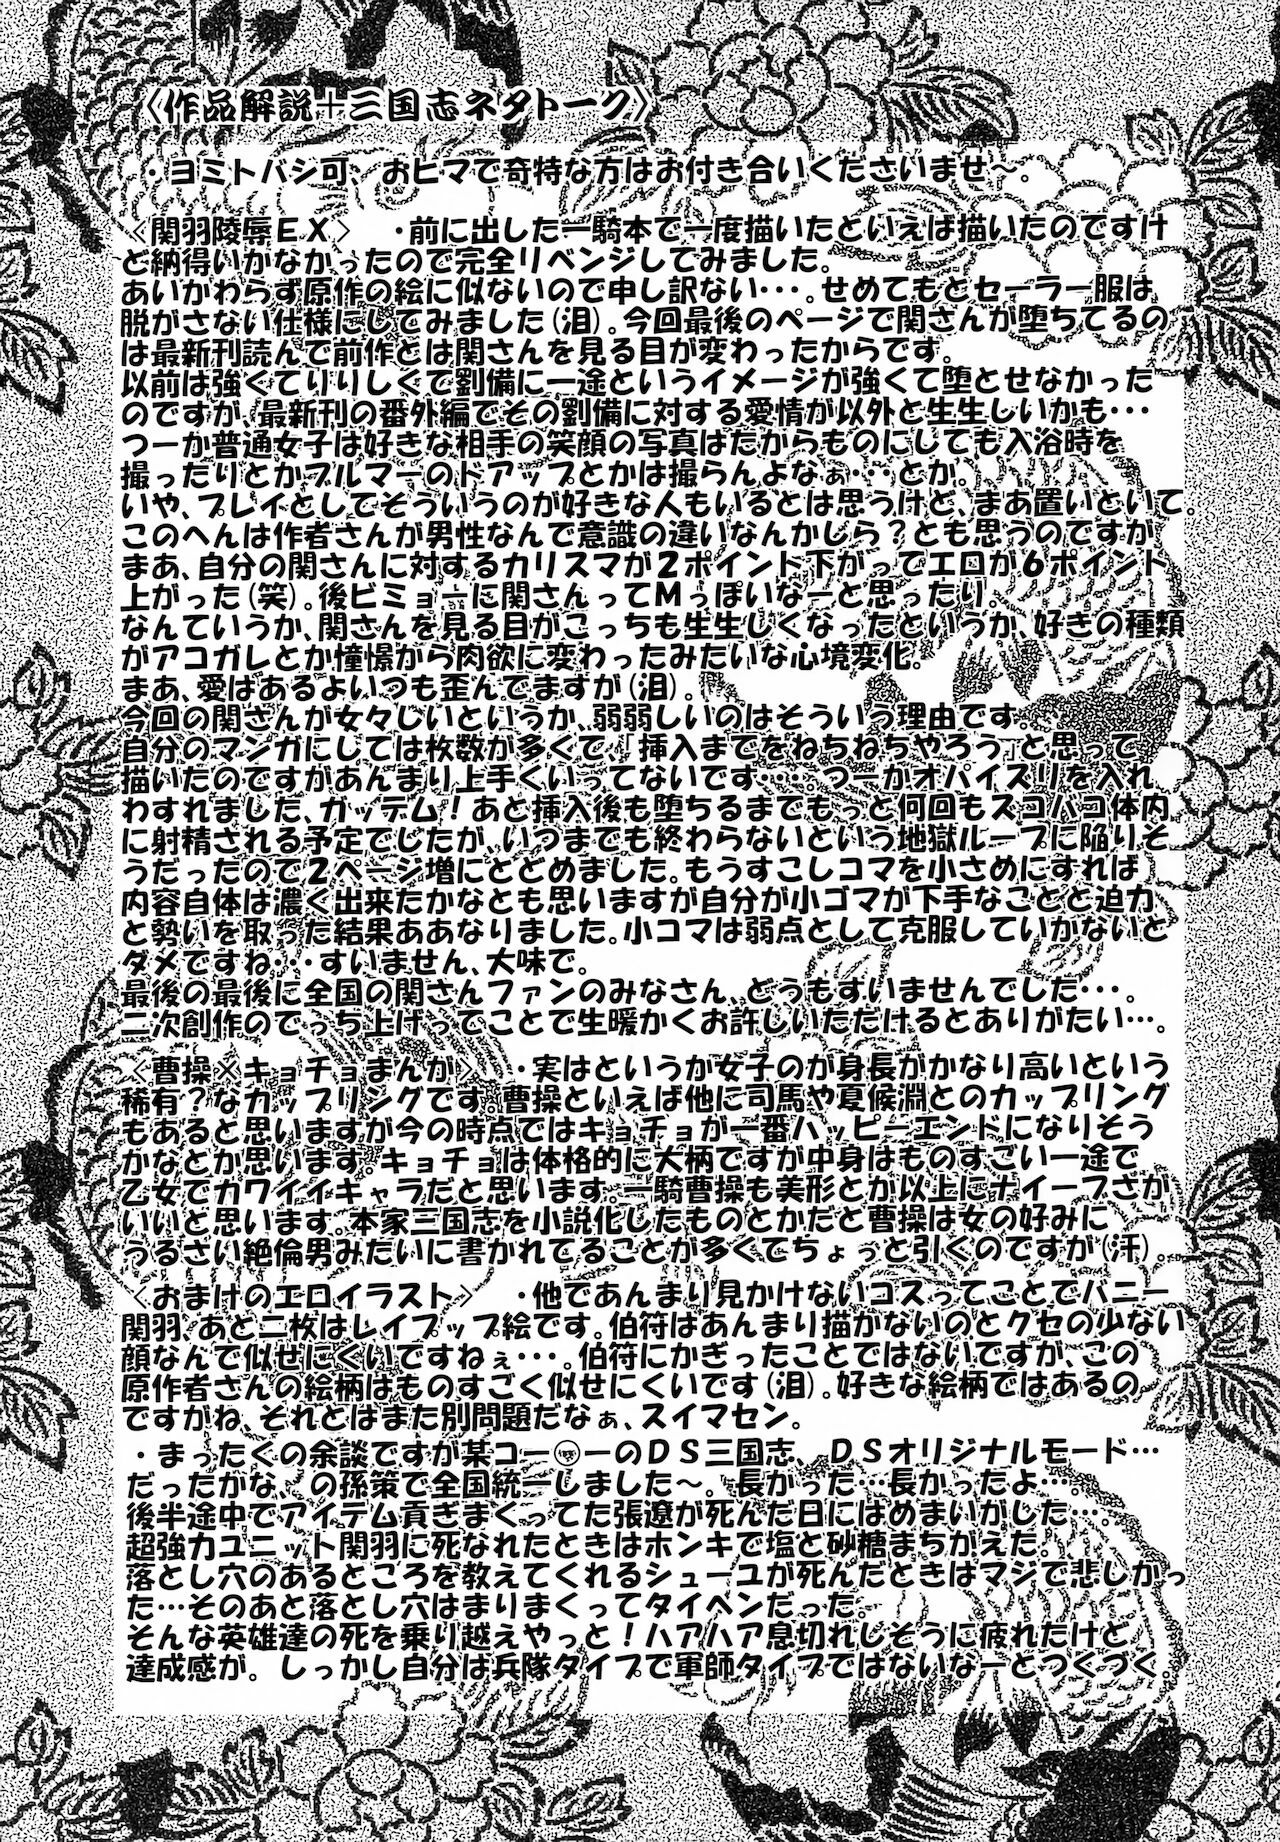 〈作品解説＋三国志ネタトーク〉
・ヨミトバシ可、おヒマで奇特な方はお付き合いくださいませ～。
〈関羽陵辱ＥＸ〉　・前に出した一騎本で一度描いたといえば描いたのですけ
ど納得いかなかったので完全リベンジしてみました。
あいかわらず原作の絵に似ないので申し訳ない・・・。せめてもとセーラー服は
脱がさない仕様にしてみました(泪)。今回最後のページで関さんが堕ちてるの
は最新刊読んで前作とは関さんを見る目が変わったからです。
以前は強くてりりしくて劉備に一途というイメージが強くて堕とせなかった
のですが、最新刊の番外編でその劉備に対する愛情が以外と生生しいかも・・・
つーか普通女子は好きな相手の笑顔の写真はたからものにしても入浴時を
撮ったりとかブルマーのドアップとかは撮らんよなぁ・・・とか。
いや、プレイとしてそういうのが好きな人もいるとは思うけど、まあ置いといて。
このへんは作者さんが男性なんで意識の違いなんかしら？とも思うのですが
まあ、自分の関さんに対するカリスマが２ポイント下がってエロが６ポイント
上がった(笑)。後ビミョーに関さんってＭっぽいなーと思ったり。
なんていうか、関さんを見る目がこっちも生生しくなったというか、好きの種類
がアコガレとか憧憬から肉欲に変わったみたいな心境変化。
まあ、愛はあるよいつも歪んでますが(泪)。
今回の関さんが女々しいというか、弱弱しいのはそういう理由です。
自分のマンガにしては枚数が多くて、「挿入までをねちねちやろう」と思って
描いたのですがあんまり上手くいってないです・・・・。つーかオパイズリを入れ
わすれました、ガッデム！あと挿入後も堕ちるまでもっと何回もズコバコ体内
に射精される予定でしたが、いつまでも終わらないという地獄ループに陥りそ
うだったので２ページ増にとどめました。もうすこしコマを小さめにすれば
内容自体は濃く出来たかなとも思いますが自分が小ゴマが下手なことと迫力
と勢いを取った結果ああなりました。小コマは弱点として克服していかないと
ダメですね・・・すいません、大味で。
最後の最後に全国の関さんファンのみなさん、どうもすいませんでした・・・。
二次創作のでっち上げってことで生暖かくお許しいただけるとありがたい・・・。
〈曹操×キョチョまんが〉　・実はというか女子のが身長がかなり高いという
稀有？なカップリングです。曹操といえば他に司馬や夏候淵とのカップリング
もあると思いますが今の時点ではキョチョが一番ハッピーエンドになりそう
かなとか思います。キョチョは体格的に大柄ですが中身はものすごい一途で
乙女でカワイイキャラだと思います。一騎曹操も美形とか以上にナイーブさが
いいと思います。本家三国志を小説化したものとかだと曹操は女の好みに
うるさい絶倫男みたいに書かれてることが多くてちょっと引くのですが(汗)。
〈おまけのエロイラスト〉　・他であんまり見かけないコスってことでバニー
関羽、あと二枚はレイプップ絵です。伯符はあんまり描かないのとクセの少ない
顔なんで似せにくいですねぇ・・・。伯符にかぎったことではないですが、この
原作者さんの絵柄はものすごく似せにくいです(泪)。好きな絵柄ではあるの
ですがね、それとはまた別問題だなぁ、スイマセン。
・まったくの余談ですが某コー　ーのＤＳ三国志、ＤＳオリジナルモード・・・
だったかな、の孫策で全国統一しました～。長かった・・・長かったよ・・・。
後半途中でアイテム貢ぎまくってた張遼が死んだ日にはめまいがした・・・。
超強力ユニット関羽に死なれたときはホンキで塩と砂糖まちがえた。
落とし穴のあるところを教えてくれるシューユが死んだときはマジで悲しかっ
た・・・そのあと落とし穴はまりまくってタイヘンだった。
そんな英雄達の死を乗り越えやっと！ハアハア息切れしそうに疲れたけど
達成感が。しっかし自分は兵隊タイプで軍師タイプではないなーとつくづく。